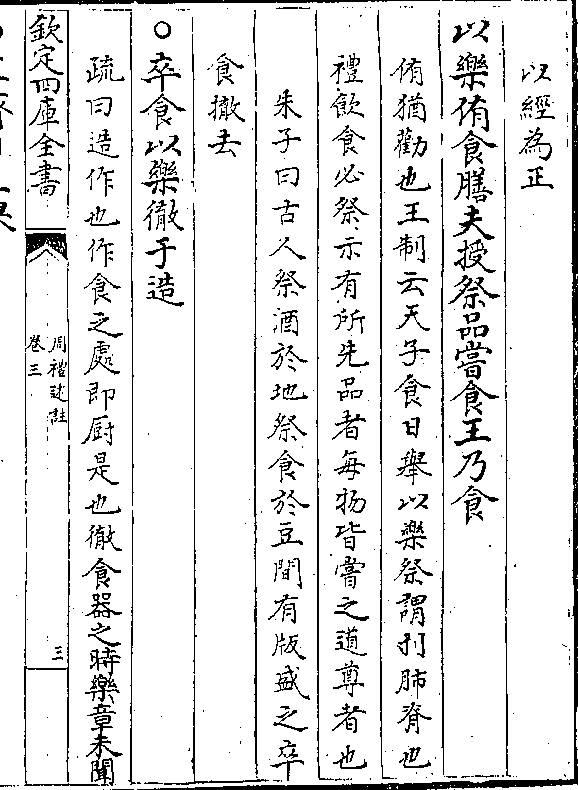 以經為正
以樂侑食膳夫授祭品嘗食王乃食
侑猶勸也王制云天子食日舉以樂祭謂刌肺脊也
禮飲食必祭示有所先品者每物皆嘗之道尊者也
朱子曰古人祭酒於地祭食於豆間有版盛之卒
食撤去
○卒食以樂徹于造
疏曰造作也作食之處即厨是也徹食器之時樂章未聞
欽定四庫全書
周禮述註
卷三
三